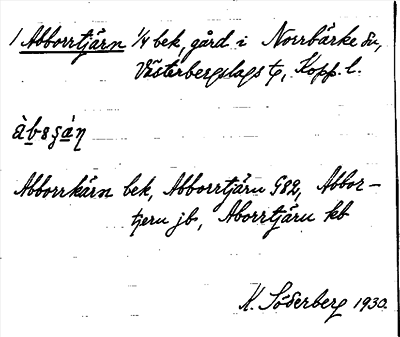 1 Abborrtjärn 1/4 bek, gård i Norrbärke sn,
Västerbergslags tg, Kopp. l.
àbsʒáŋ
Abborrkärn bek, Abborrtjärn G82, Abbor-
tjern jb, Aborrtjärn kb
K. Söderberg 1930.